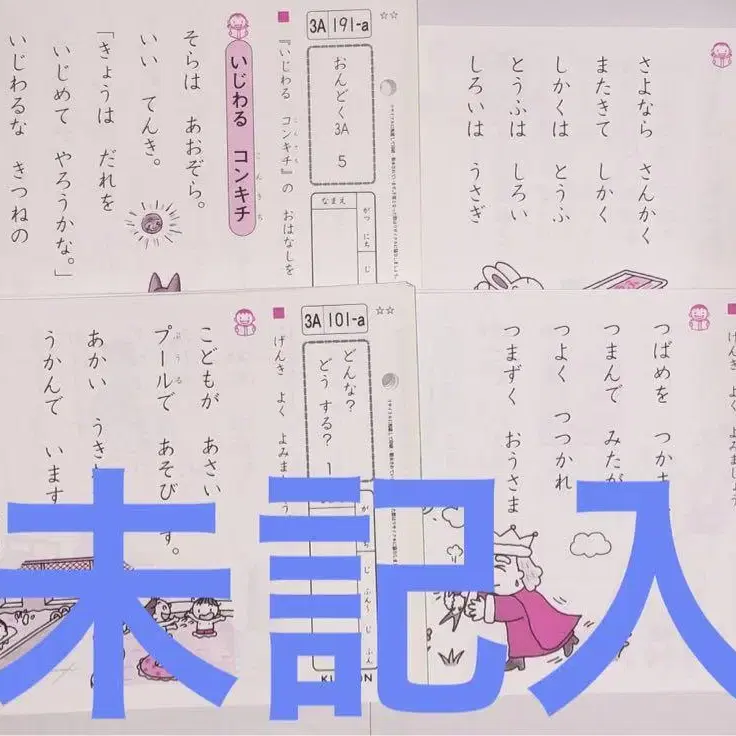 3A 191-a
☆☆
おんどく3A 5
なまえ
がつ にち
じ
『いじわる コンキチ』の おはなしを
いじわる コンキチ
こんきち
そらは あおぞら。
いい てんき。
「きょうは だれを
いじめて やろうかな。」
いじわるな きつねの
さよなら さんかく
またきて しかく
しかくは とうふ
とうふは しろい
しろいは うさぎ
3A 101-a
☆☆
どんな?
どう する? 1
じ ふん
じ ふん
げんき よく よみま
こどもが あさい
プールで あそび
ぷうる
す。
あかい うき
うかんで います
げんき よく よみましょう
つばめを つかま
つまんで みたが
つよく つつかれ
つまずく おうさま
未記入